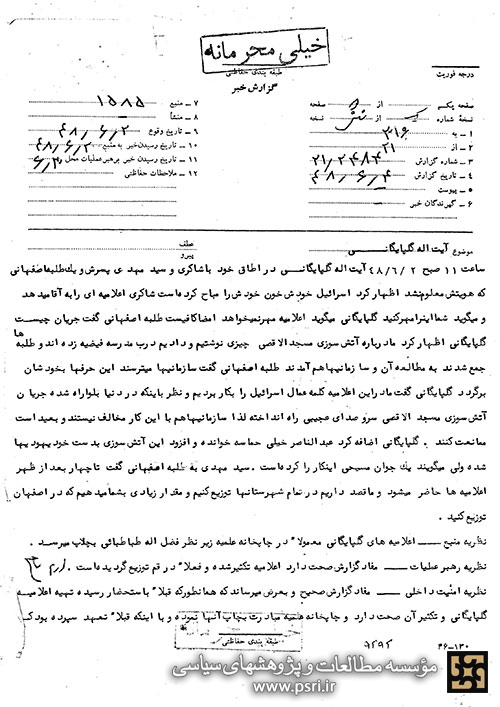 خیلی محرمانه
طبقه بندی حفاظتی
گزارش خبر
درجه فوریت
صفحه یکم از ۵ صفحه
نسخه شماره از نسخه
۱ – به ۳۱۶
۲ – از ۲۱
۳ – شماره گزارش ۲۱/۲۴۸۴
۴ – تاریخ گزارش ۴۸/۶/۴
۵ – پیوست
۶ – گیرندگان خبر
۷ – منبع ۱۵۸۵
۸ – منشأ
۹ – تاریخ وقوع ۴۸/۶/۲
۱۰ – تاریخ رسیدن خبر به منبع ۴۸/۶/۲
۱۱ – تاریخ رسیدن خبر برهبر عملیات محل ۶/۳
۱۲ – ملاحظات حفاظتی
موضوع آیت اله گلپایگانی
عطف
پیرو
ساعت ۱۱ صبح ۴۸/۶/۲ آیت اله گلپایگانی در اطاق خود باشاکری و سید مهدی پسرش و یك طلبه اصفهانی
که هویتش معلوم نشد اظهار کرد اسرائیل خودش خون خودش را مباح کرده است شاکری اعلامیه ای را به آقا میدهد
و میگوید شما اینرا مهر کنید گلپایگانی میگوید اعلامیه مهر نمیخواهد امضا کافیست طلبه اصفهانی گفت جریان چیست
گلپایگانی اظهار کرد ما درباره آتش سوزی مسجد الاقصی چیزی نوشتیم و دادیم درب مدرسه فیضیه زده اند و طلبه ها
جمع شدند به مطالعه آن و سازمانیها هم آمدند طلبه اصفهانی گفت سازمانیها میترسند این حرفها بخودشان
برگردد گلپایگانی گفت ما در این اعلامیه کلمه عمال اسرائیل را بکار بردیم و نظر باینکه در دنیا بلوا راه شده جریان
آتش سوزی مسجد الاقصی سروصدای عجیبی راه انداخته لذا سازمانیها هم با این کار مخالف نیستند و بعید است
ممانعت کنند . گلپایگانی اضافه کرد عبدالناصر خیلی حماسه خوانده و افزود این آتش سوزی بدست خود یهودیها
شده ولی میگویند یك جوان مسیحی اینکار را کرده است . سید مهدی به طلبه اصفهانی گفت تا چهار بعد از ظهر
اعلامیه ها حاضر میشود و ما قصد داریم در تمام شهرستانها توزیع کنیم و مقدار زیادی بشما میدهیم که در اصفهان
توزیع کنید .
نظریه منبع – اعلامیه های گلپایگانی معمولاً در چاپخانه علمیه زیر نظر فضل اله طباطبائی بچاپ میرسد .
نظریه رهبر عملیات – مفاد گزارش صحت دارد اعلامیه تکثیر شده و فعلاً در قم توزیع گردیده است .
نظریه امنیت داخلی – مفاد گزارش صحیح و بعرض میرساند که همانطور که قبلاً باستحضار رسیده تهیه اعلامیه
گلپایگانی و تکثیر آن صحت دارد و چاپخانه علمیه مبادرت بچاپ آنها نموده و با اینکه قبلاً تعهد سپرده بود که
طبقه بندی حفاظتی
۴۶–۱۳۰
مؤسسه مطالعات و پژوهشهای سیاسی
www.psri.ir